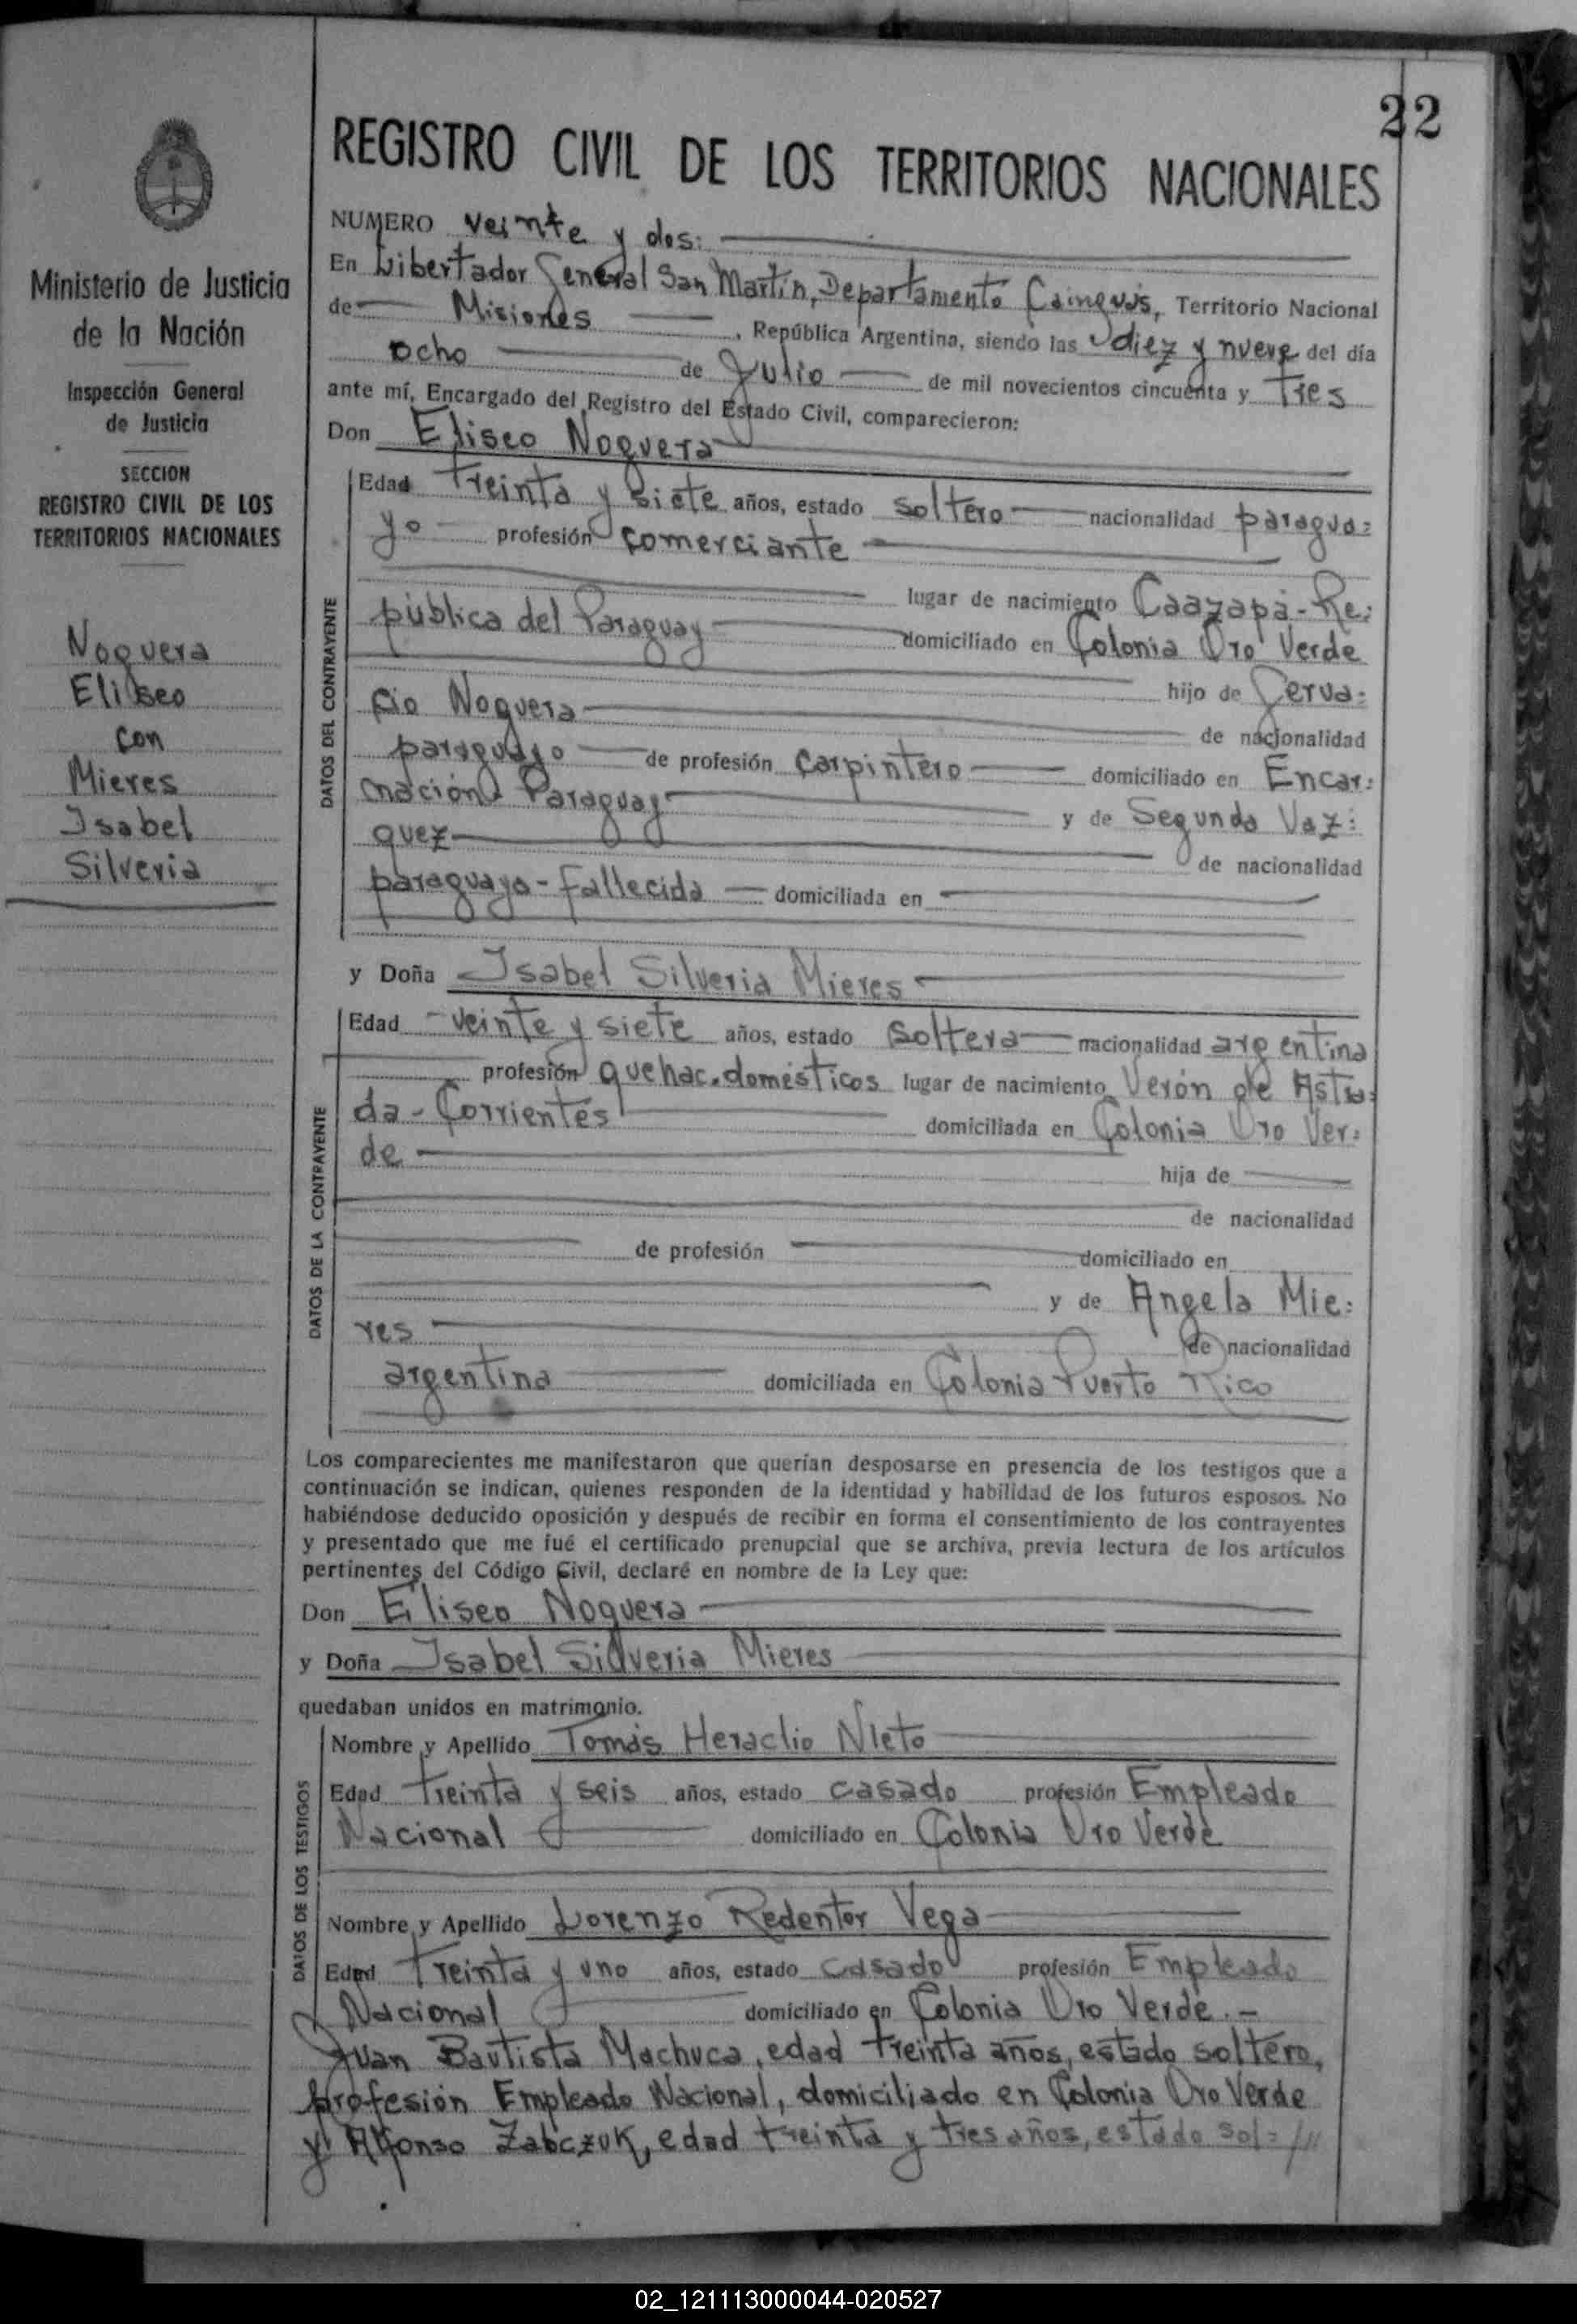 22
REGISTRO CIVIL DE LOS TERRITORIOS NACIONALES
Ministerio de Justicia
de la Nación
Inspección General
de Justicia
SECCION
REGISTRO CIVIL DE LOS
TERRITORIOS NACIONALES
Noguera
Eliseo
con
Mieres
Isabel
Silveria
NUMERO veinte y dos:
En Libertador General San Martín, Departamento Cainguás, Territorio Nacional
de Misiones, República Argentina, siendo las diez y nueve del día
ocho de Julio de mil novecientos cincuenta y tres
ante mí, Encargado del Registro del Estado Civil, comparecieron:
Don Eliseo Noguera
DATOS DEL CONTRAYENTE
Edad treinta y siete años, estado soltero nacionalidad paragua=
yo profesión comerciante
lugar de nacimiento Caazapá-Re:
pública del Paraguay domiciliado en Colonia Oro Verde
hijo de Gerva=
cio Noguera de nacionalidad
paraguayo de profesión carpintero domiciliado en Encar:
nación Paraguay y de Segunda Vaz:
quez de nacionalidad
paraguaya-fallecida domiciliada en
y Doña Isabel Silveria Mieres
DATOS DE LA CONTRAYENTE
Edad veinte y siete años, estado soltera nacionalidad argentina
profesión quehac. domésticos lugar de nacimiento Verón de Astra=
da-Corrientes domiciliada en Colonia Oro Ver:
de hija de
de nacionalidad
de profesión domiciliado en
y de Angela Mie:
res de nacionalidad
argentina domiciliada en Colonia Puerto Rico
Los comparecientes me manifestaron que querían desposarse en presencia de los testigos que a
continuación se indican, quienes responden de la identidad y habilidad de los futuros esposos. No
habiéndose deducido oposición y después de recibir en forma el consentimiento de los contrayentes
y presentado que me fué el certificado prenupcial que se archiva, previa lectura de los artículos
pertinentes del Código Civil, declaré en nombre de la Ley que:
Don Eliseo Noguera
y Doña Isabel Silveria Mieres
quedaban unidos en matrimonio.
DATOS DE LOS TESTIGOS
Nombre y Apellido Tomás Heraclio Nieto
Edad treinta y seis años, estado casado profesión Empleado
Nacional domiciliado en Colonia Oro Verde
Nombre y Apellido Lorenzo Redentor Vega
Edad treinta y uno años, estado casado profesión Empleado
Nacional domiciliado en Colonia Oro Verde.-
Juan Bautista Machuca, edad treinta años, estado soltero,
profesión Empleado Nacional, domiciliado en Colonia Oro Verde
y Alfonso Zabczuk, edad treinta y tres años, estado sol= ///
02_121113000044-020527